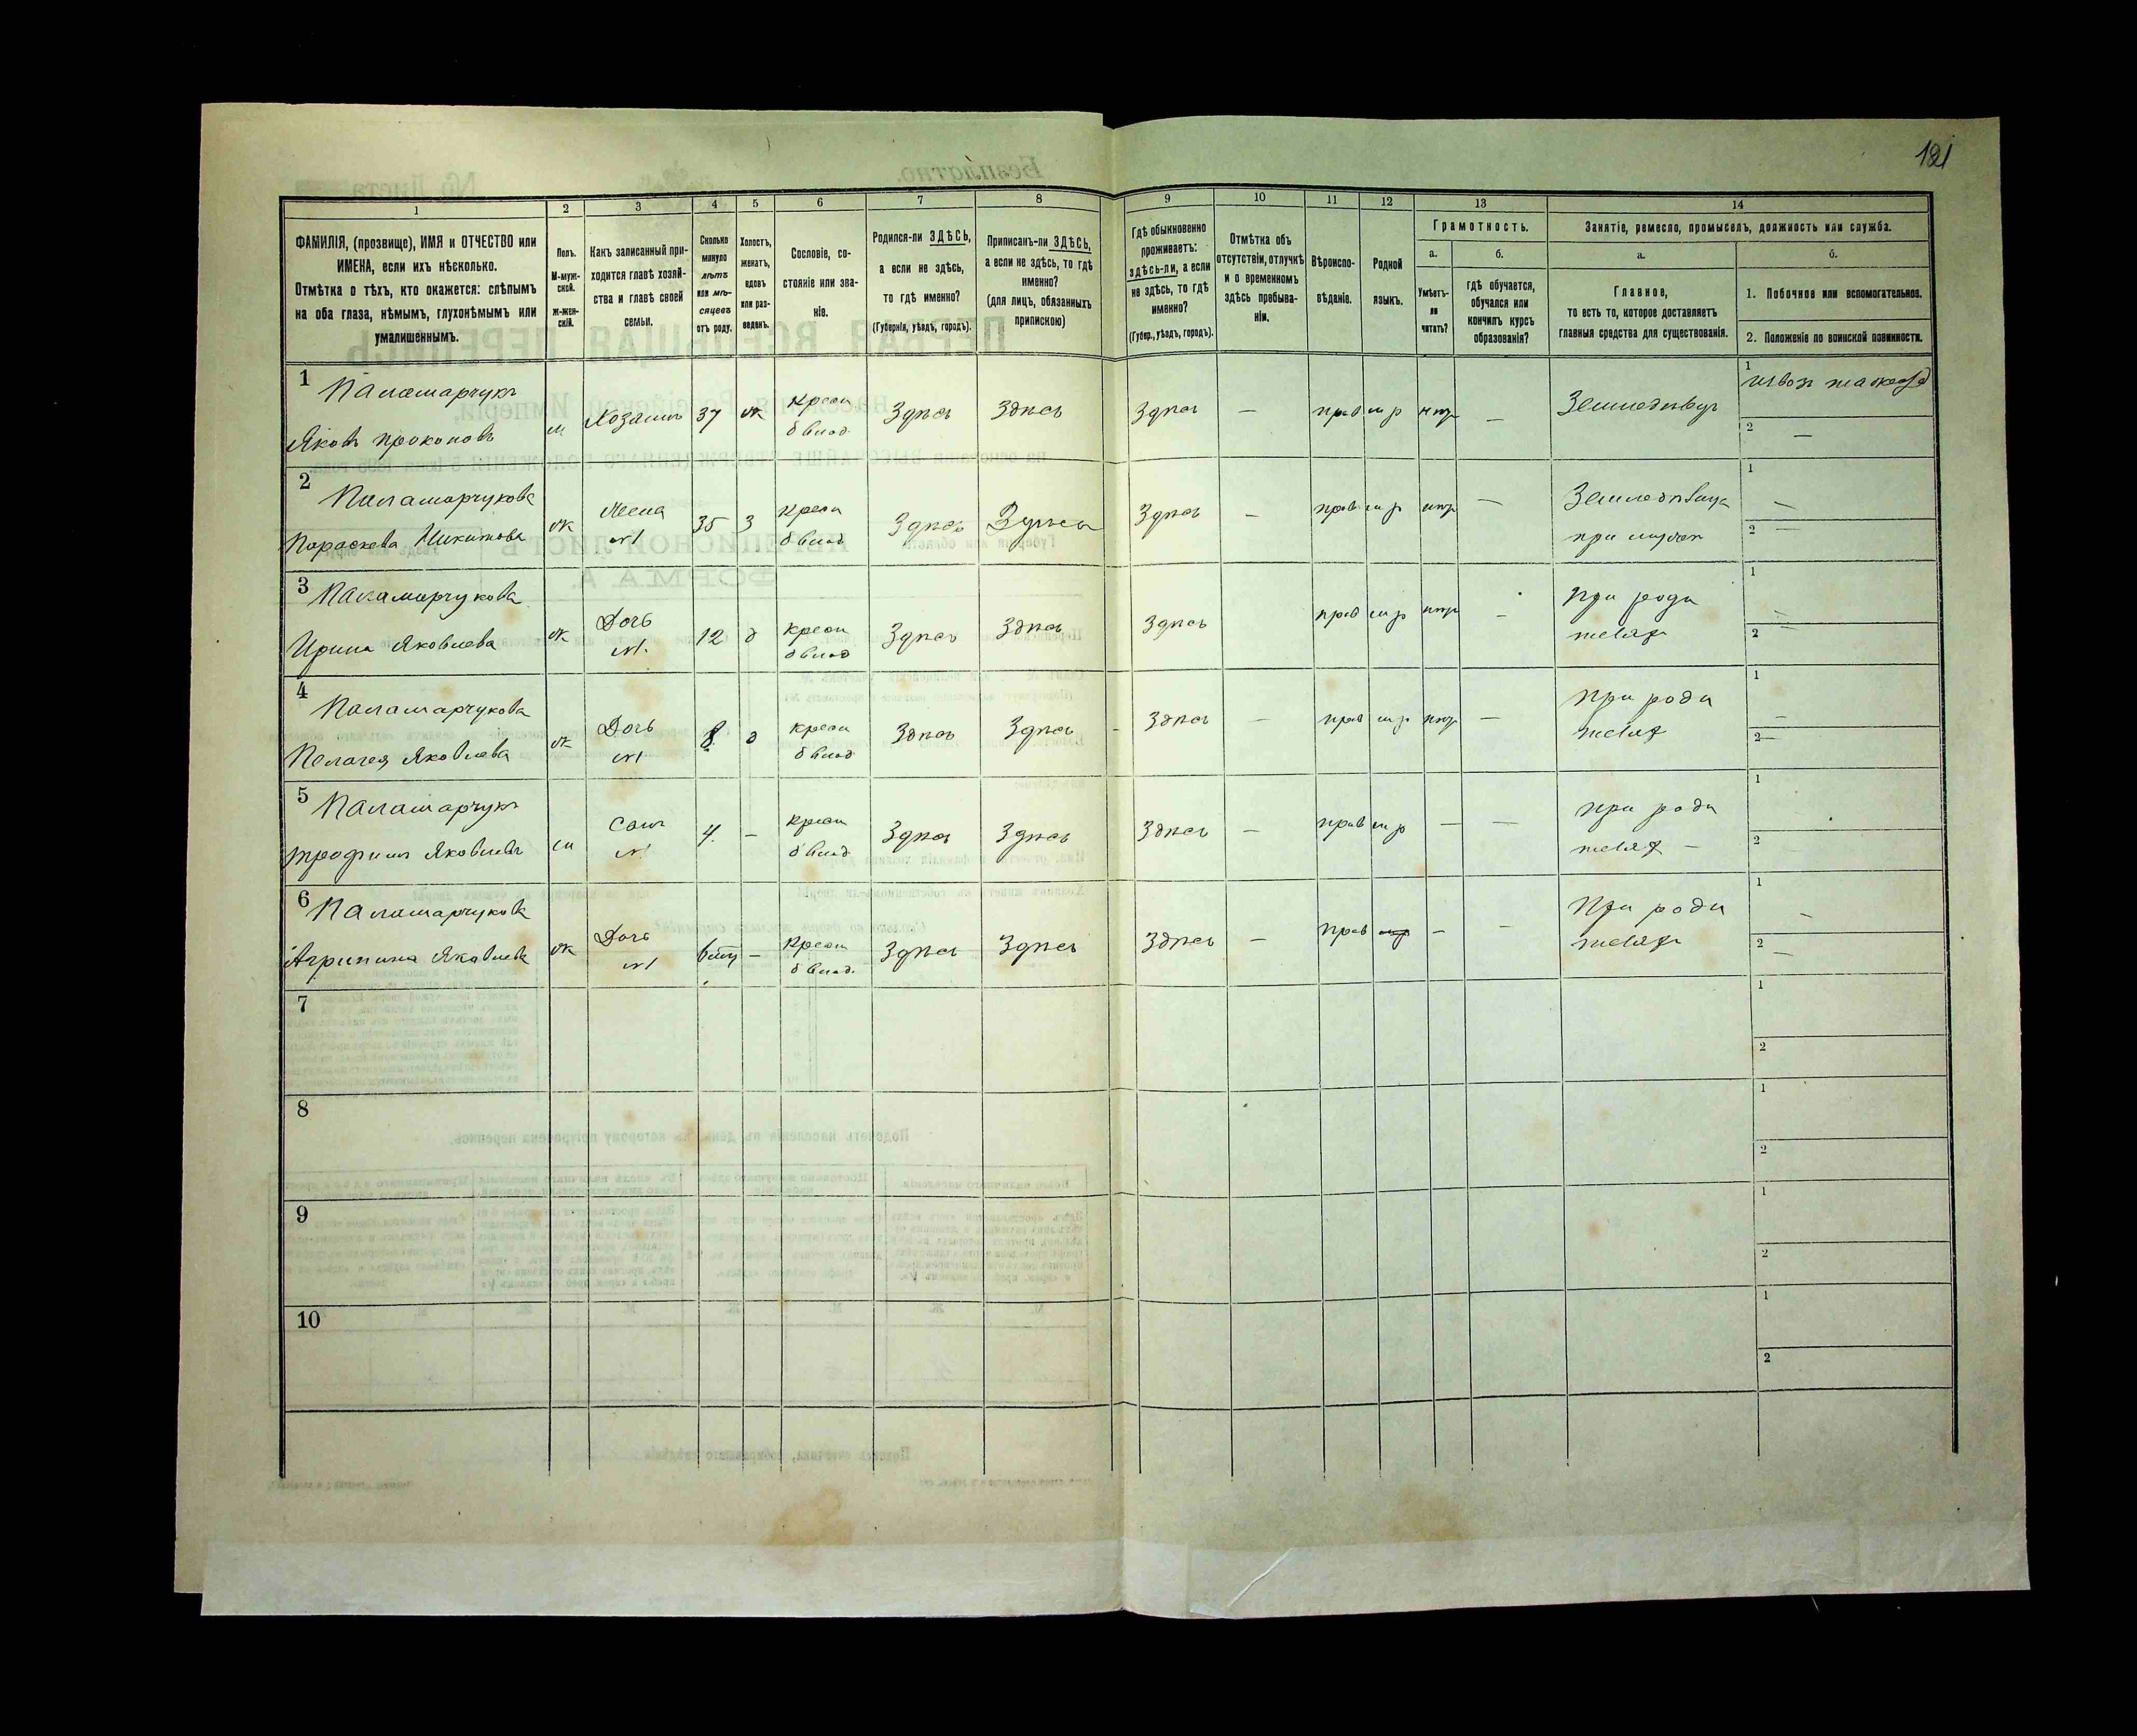 121
1 2 3 4 5 6 7 8 9 10 11 12 13 14
ФАМИЛІЯ, (прозвище), ИМЯ и ОТЧЕСТВО или
ИМЕНА, если ихъ нѣсколько.
Отмѣтка о тѣхъ, кто окажется: слѣпымъ
на оба глаза, нѣмымъ, глухонѣмымъ или
умалишеннымъ.
Полъ.
М-муж-
ской.
ж-жен-
скій.
Какъ записанный при-
ходится главѣ хозяй-
ства и главѣ своей
семьи.
Сколько
минуло
лѣтъ
или мѣ-
сяцевъ
отъ роду.
Холостъ,
женатъ,
вдовъ
или раз-
веденъ.
Сословіе, со-
стояніе или зва-
ніе.
Родился-ли ЗДѢСЬ,
а если не здѣсь,
то гдѣ именно?
(Губернія, уѣздъ, городъ).
Приписанъ-ли ЗДѢСЬ,
а если не здѣсь, то гдѣ
именно?
(для лицъ, обязанныхъ
припискою)
Гдѣ обыкновенно
проживаетъ:
здѣсь-ли, а если
не здѣсь, то гдѣ
именно?
(Губер., уѣздъ, городъ).
Отмѣтка объ
отсутствіи, отлучкѣ
и о временномъ
здѣсь пребыва-
ніи.
Вѣроиспо-
вѣданіе.
Родной
языкъ.
Грамотность.
а.
Умѣетъ-
ли
читать?
б.
гдѣ обучается,
обучался или
кончилъ курсъ
образованія?
Занятіе, ремесло, промыселъ, должность или служба.
а.
Главное,
то есть то, которое доставляетъ
главныя средства для существованія.
б.
1. Побочное или вспомогательное.
2. Положеніе по воинской повинности.
1 Паламарчукъ
Яковъ Прокоповъ
м
Хозяинъ
37
ж
крест
б влад
Здѣсь
Здѣсь
Здѣсь
—
прав
мр
нгр
—
Земледѣлецъ
1
2 —
2 Паламарчукова
Параскева Никитова
ж
Жена
№1
35
З
крест
б влад
Здѣсь
Здѣсь
Здѣсь
—
прав
мр
нгр
—
при мужѣ
1 —
2 —
3 Паламарчукова
Ирина Яковлева
ж
Дочь
№1
12
д
крест
б влад
Здѣсь
Здѣсь
Здѣсь
прав
мр
нгр
—
При роди
теляхъ
1 —
2 —
4 Паламарчукова
Пелагея Яковлева
ж
Дочь
№1
8
д
крест
б влад
Здѣсь
Здѣсь
Здѣсь
—
прав
мр
нгр
—
При роди
теляхъ
1 —
2 —
5 Паламарчукъ
Трофимъ Яковлевъ
м
Сынъ
№1
4
—
крест
б влад
Здѣсь
Здѣсь
Здѣсь
—
прав
мр
—
—
при роди
теляхъ —
1
2
6 Паламарчукова
Агрипина Яковлева
ж
Дочь
№1
—
крест
б влад.
Здѣсь
Здѣсь
Здѣсь
—
прав
мр
—
—
При роди
теляхъ
1 —
2 —
7
1
2
8
1
2
9
1
2
10
1
2